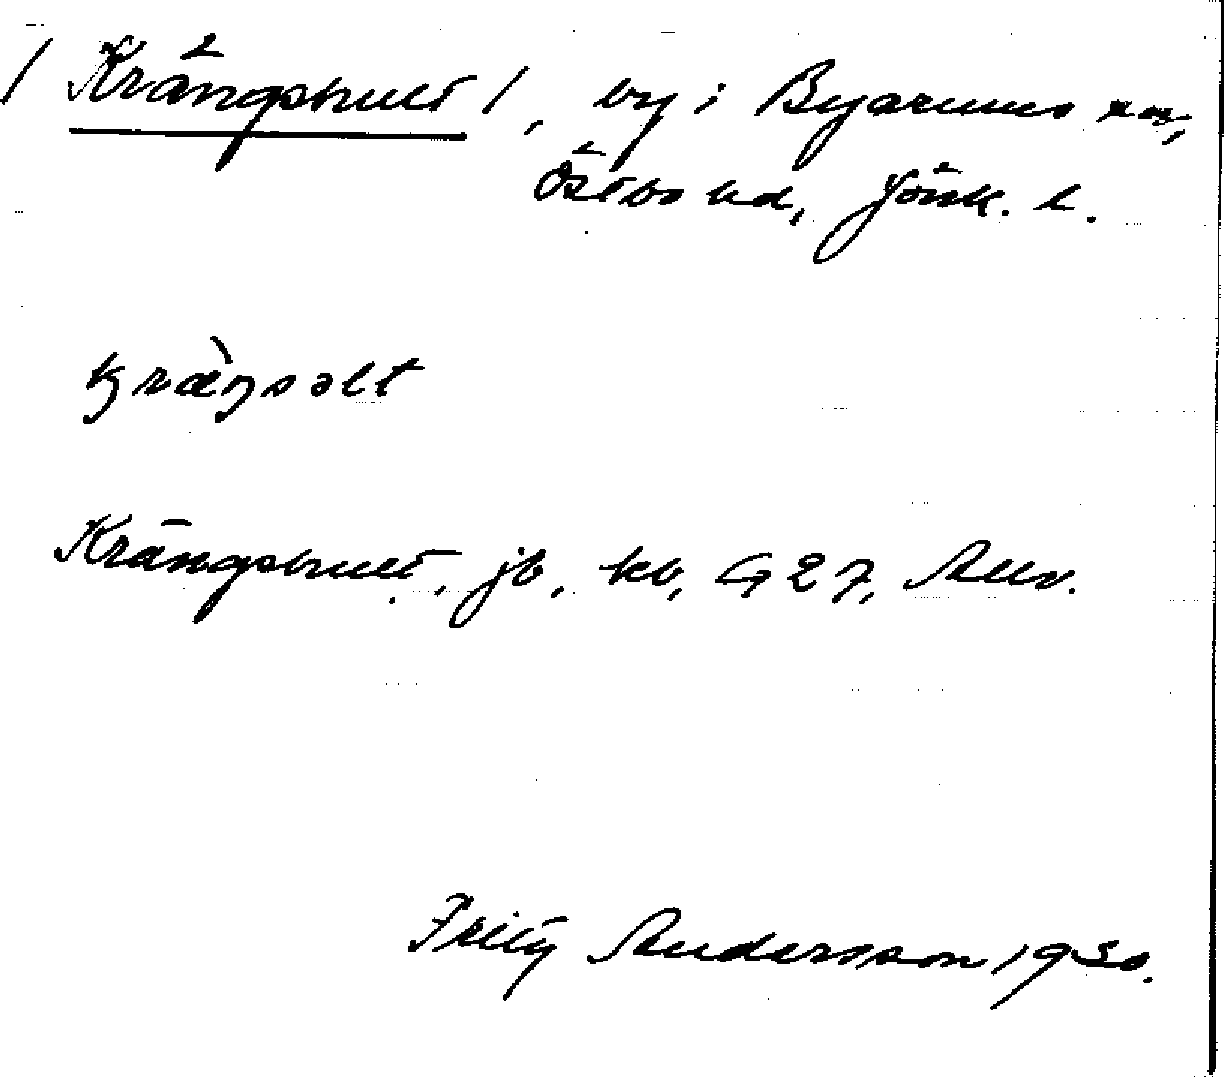 / Krängshult /, by i Byarums sn,
Östbo hd, Jönk. l.
kræ̀ŋsəlt
Krängshult, jb, kb, G 27, Allv.
Fritz Andersson 1930.